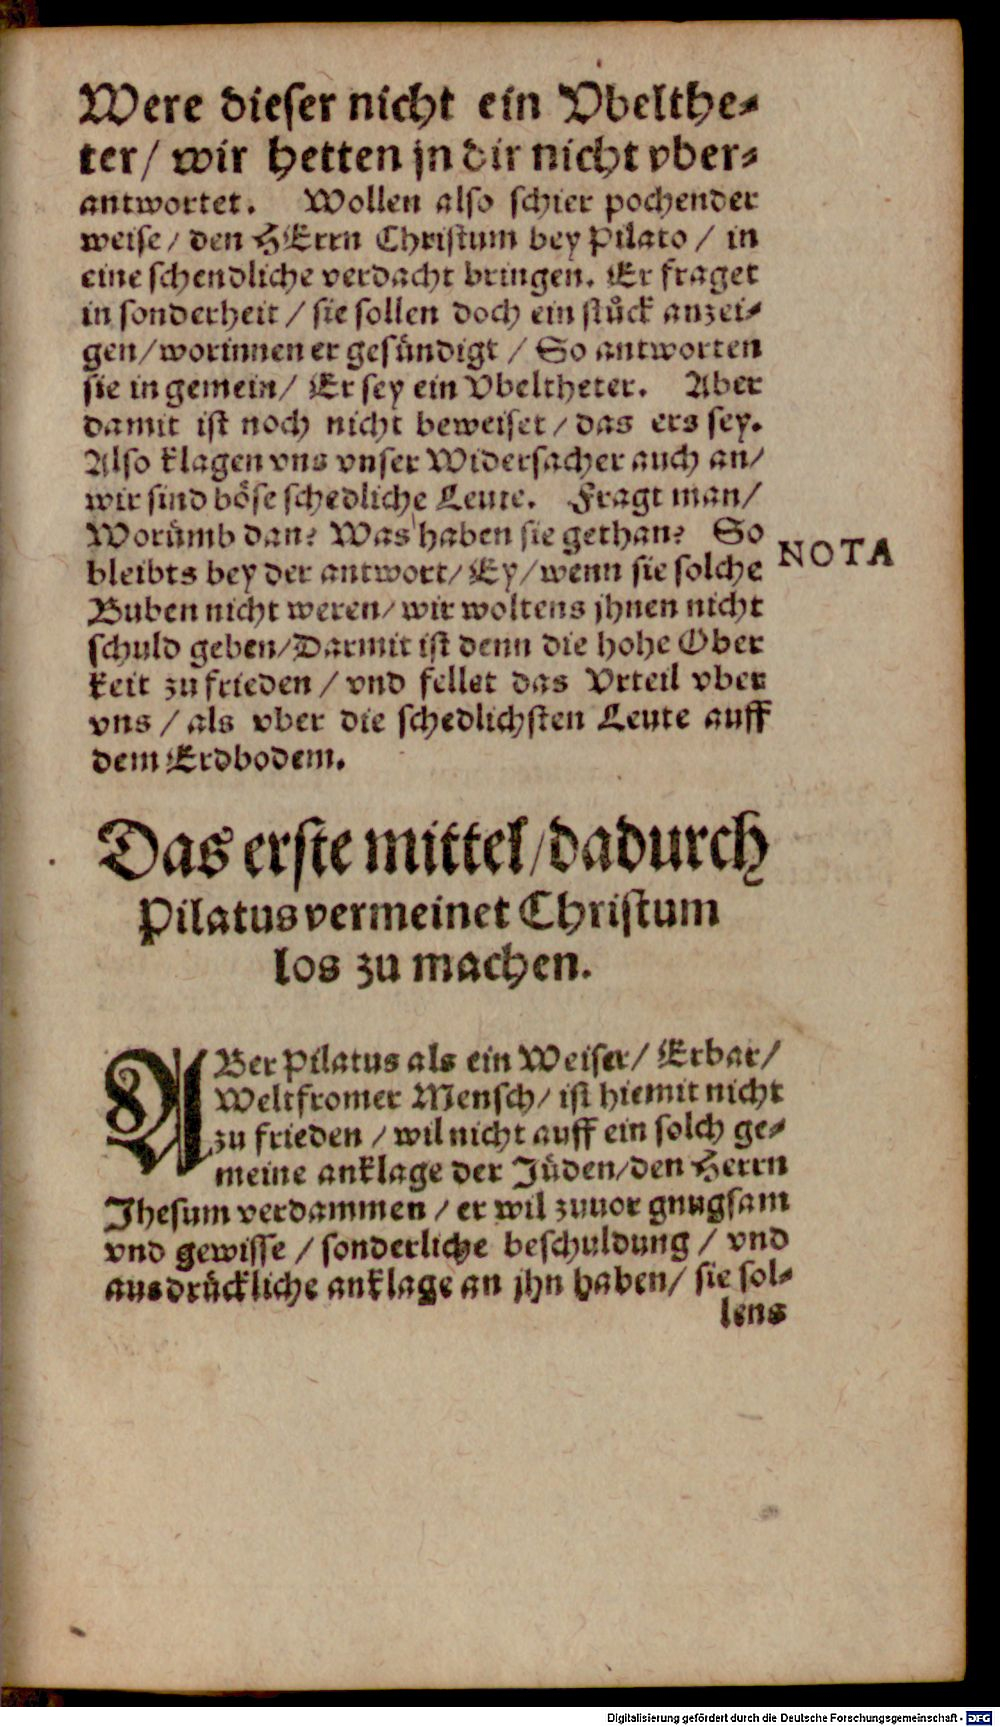 Were dieſer nicht ein Vbelthe⸗
ter/ wir hetten jn dir nicht vber⸗
antwortet. Wollen alſo ſchier pochender
weiſe/ den HErrn Chriſtum bey Pilato/ in
eine ſchendliche verdacht bringen. Er fraget
in ſonderheit/ ſie ſollen doch ein ſtuͤck anzei⸗
gen/ worinnen er geſuͤndigt/ So antworten
ſie in gemein/ Er ſey ein Vbeltheter. Aber
damit iſt noch nicht beweiſet/ das ers ſey.
Alſo klagen vns vnſer Widerſacher auch an/
wir ſind boͤſe ſchedliche Leute. Fragt man/
Woruͤmb dan? Was haben ſie gethan? So
NOTA
bleibts bey der antwort/ Ey/ wenn ſie ſolche
Buben nicht weren/ wir woltens jhnen nicht
ſchuld geben/ Darmit iſt denn die hohe Ober
keit zu frieden/ vnd fellet das Vrteil vber
vns/ als vber die ſchedlichſten Leute auff
dem Erdbodem.
Das erſte mittel/ dadurch
Pilatus vermeinet Chriſtum
los zu machen.
ABer Pilatus als ein Weiſer/ Erbar/
Weltfromer Menſch/ iſt hiemit nicht
zu frieden/ wil nicht auff ein ſolch ge⸗
meine anklage der Juͤden/ den Herrn
Jheſum verdammen/ er wil zuuor gnugſam
vnd gewiſſe/ ſonderliche beſchuldung/ vnd
ausdruͤckliche anklage an jhn haben/ ſie ſol⸗
lens
Digitalisierung gefördert durch die Deutsche Forschungsgemeinschaft - DFG